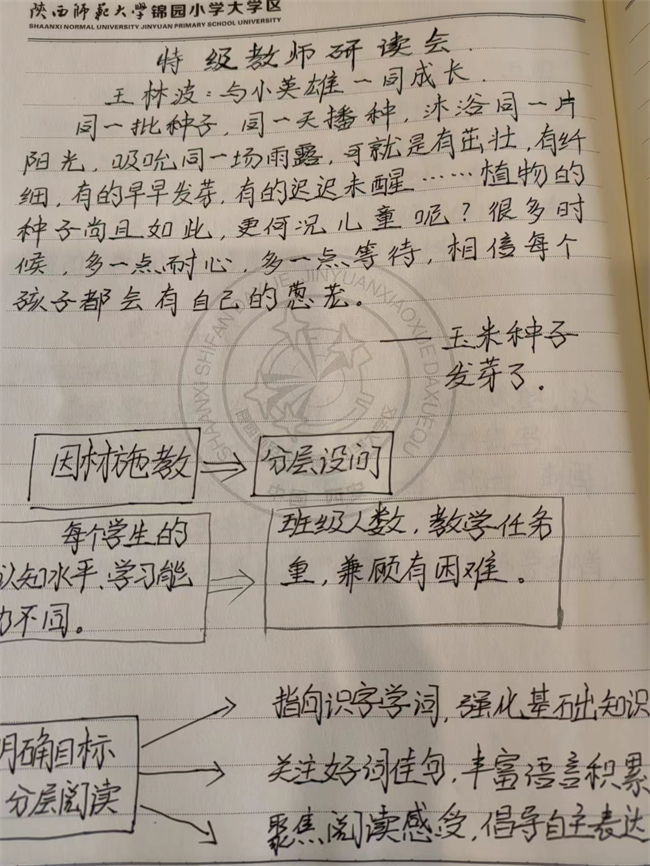 陕西师范大学锦园小学大学区
SHAANXI NORMAL UNIVERSITY JINYUAN PRIMARY SCHOOL UNIVERSITY
特级教师研读会.
王林波：与小英雄一同成长.
同一批种子，同一天播种，沐浴同一片
阳光，吸吮同一场雨露，可就是有茁壮，有纤
细，有的早早发芽，有的迟迟未醒……植物的
种子尚且如此，更何况儿童呢？很多时
候，多一点耐心，多一点等待，相信每个
孩子都会有自己的葱茏。
SHAANXI SHIFAN DAXUE JINYUANXIAOXUE DAXUEQU
中国 西安
——玉米种子
发芽了.
因材施教 ⇒ 分层设问
每个学生的
认知水平、学习能
力不同。
班级人数，教学任务
重，兼顾有困难。
明确目标
分层阅读
指向识字学词，强化基础知识
关注好词佳句，丰富语言积累
聚焦阅读感受，倡导自主表达